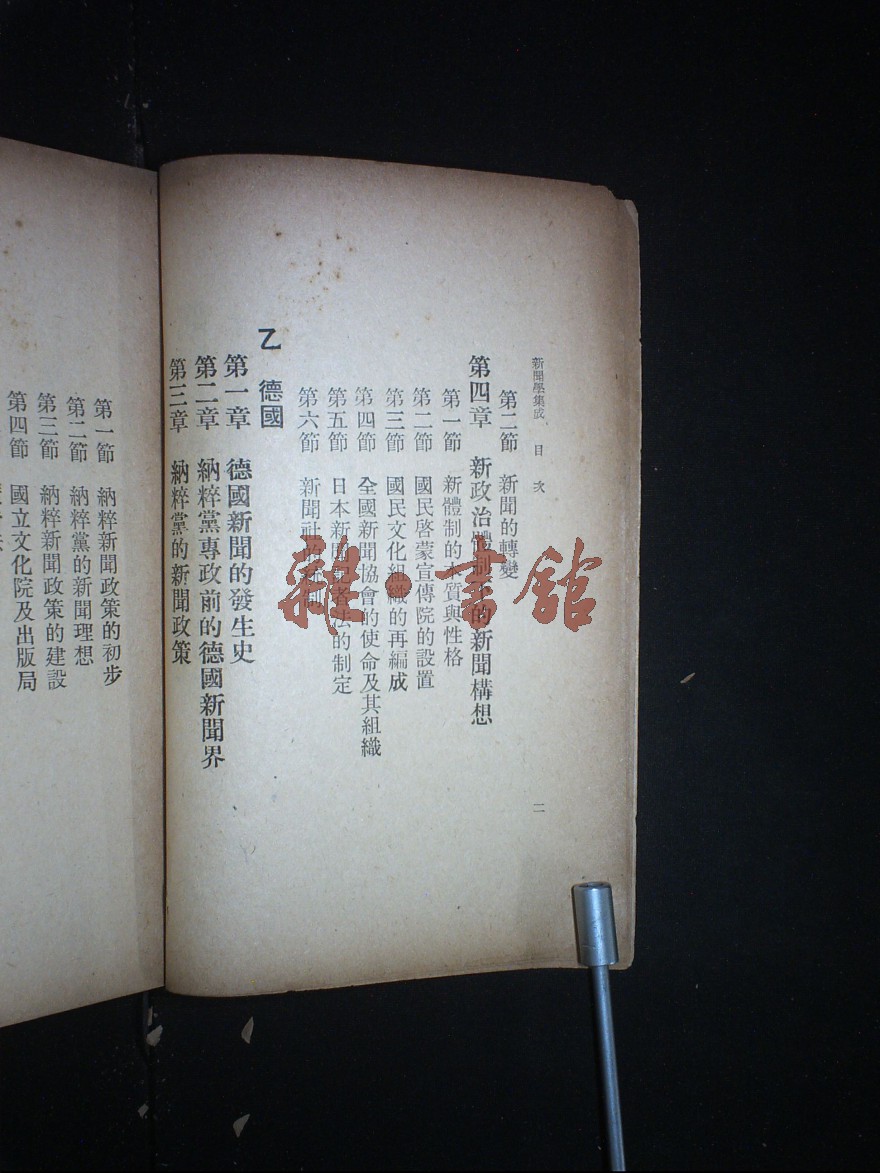 新聞學集成　目次
二
第二節　新聞的轉變
第四章　新政治體制下的新聞構想
第一節　新體制的本質與性格
第二節　國民啓蒙宣傳院的設置
第三節　國民文化組織的再編成
第四節　全國新聞協會的使命及其組織
第五節　日本新聞記者法的制定
第六節　新聞社的
乙　德國
第一章　德國新聞的發生史
第二章　納粹黨專政前的德國新聞界
第三章　納粹黨的新聞政策
第一節　納粹新聞政策的初步
第二節　納粹黨的新聞理想
第三節　納粹新聞政策的建設
第四節　國立文化院及出版局
雜·書館